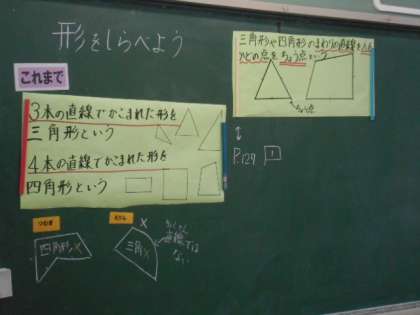 形をしらべよう
これまで
3本の直線でかこまれた形を
三角形という
4本の直線でかこまれた形を
四角形という
三角形や四角形のまわりの直線をへん
かどの点をちょう点という
ちょう点
P.129 1
四角形×
×
三角×
直線では
ない